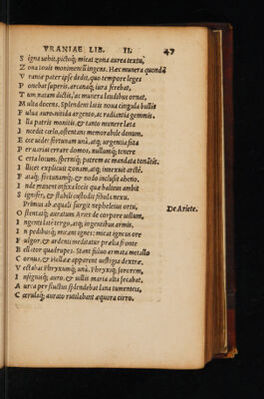 VRANIAE LIB. II. 47
S igna uehit, pictoq; micat zona aurea textu,
Z ona Iouis monimentū ingens. Hæc munera quondā
V rania pater ipse dedit, quo tempore leges
P onebat superis, arcanaq; iura ferebat,
T um natam dictis, ac munera laudibus ornat,
M ulta docens. Splendens latis noua cingula bullis
F ulua auro, nitida argento, ac radiantia gemmis.
I lla patris monitis, & tanto munere læta
I ncedit cœlo, ostentans memorabile donum.
E cce uides fortunam uni, atq; urgentia fata
P eruersis errare domos, nullumq; tenere
C erta locum. sperniq; patrem ac mandata tonātis.
I llicet explicuit zonam, atq; innexuit arctè.
F ataq; fortunamq; & nodo inclusit aheno.
I nde manent infixa locis qua balteus ambit
S ignifer, & stabili custodit fibula nexu.
Primus ab æquali surgit nepheleius ortu,
O stentatq; auratum Aries de corpore uellum,
I ngenti late tergo, atq; ingentibus armis,
I n pedibusq; micant ignes: micat igneus ore
F ulgor, & ardenti meditatur prælia fronte
B ellator quadrupes. Stant fuluo armata metallo
C ornua, & Hellææ apparent uestigia dextræ,
V ectabat Phryxumq; unà, Phryxiq; sororem,
I nsignisq; auro, & uillis maria alta secabat,
A urea per fluctus splendebat lana tumentes,
C œrulaq; aurato rutilabant æquora cirro.
De Ariete.